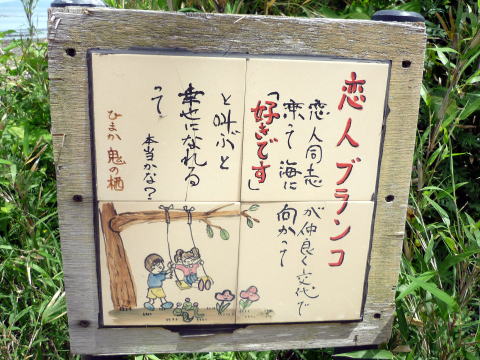 恋人ブランコ
恋人同志が仲良く交代で
乗って海に向かって
「好きです」
と叫ぶと
幸せになれる
って
本当かな?
ひまか鬼の栖